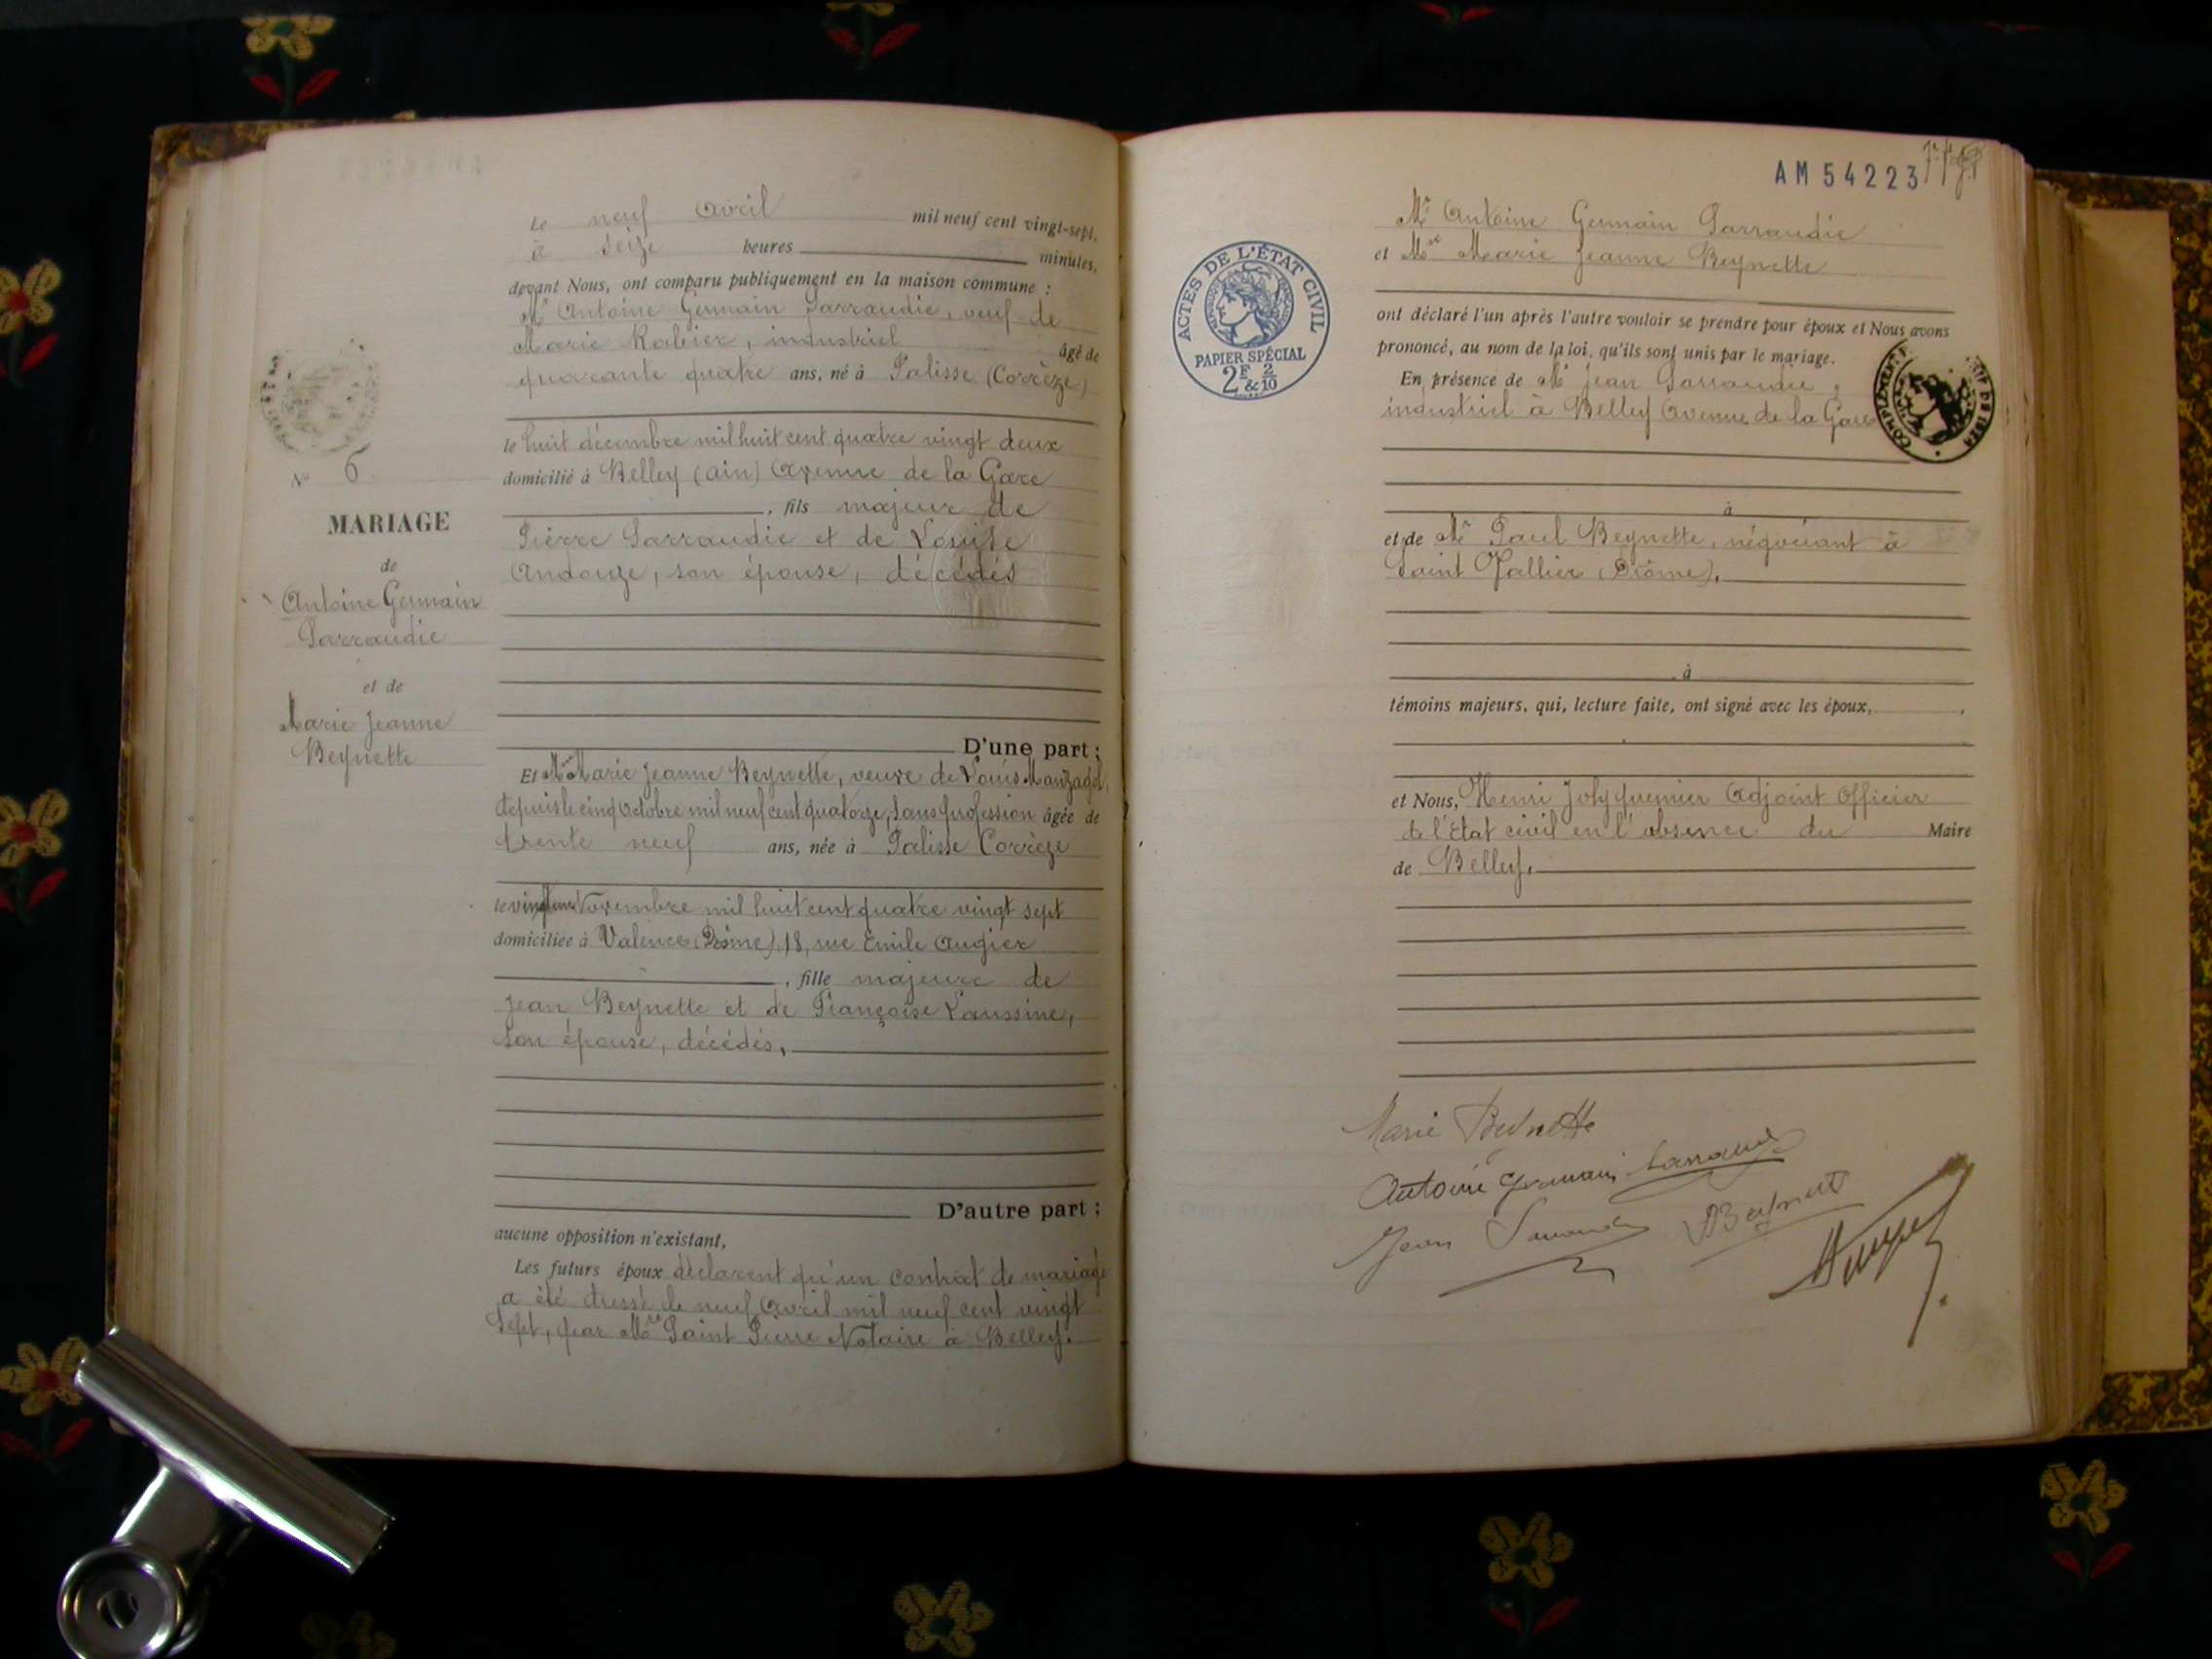 Le neuf Avril mil neuf cent vingt-sept,
à seize heures minutes,
devant Nous, ont comparu publiquement en la maison commune :
Mr Antoine Germain Sarraudie, veuf de
Marie Rabier, industriel âgé de
quarante quatre ans, né à Palisse (Corrèze)
le huit décembre mil huit cent quatre vingt deux
domicilié à Belley (Ain) Avenue de la Gare
, fils majeur de
Pierre Sarraudie et de Louise
Andouze, son épouse, décédés
D'une part :
Et Mme Marie Jeanne Beynette, veuve de Louis Manzagol,
depuis le cinq octobre mil neuf cent quatorze, sans profession âgée de
trente neuf ans, née à Palisse Corrèze
le Novembre mil huit cent quatre vingt sept
domiciliée à Valence (Drôme), 18, rue Emile Augier
, fille majeure de
Jean Beynette et de Françoise Laussine,
son épouse, décédés,
D'autre part :
aucune opposition n'existant,
Les futurs époux déclarent qu'un contrat de mariage
a été dressé le neuf Avril mil neuf cent vingt
sept, par Me Saint Pierre Notaire à Belley.
No 6
MARIAGE
de
Antoine Germain
Sarraudie
et de
Marie Jeanne
Beynette
AM54223
Mr Antoine Germain Sarraudie
et Mme Marie Jeanne Beynette
ont déclaré l'un après l'autre vouloir se prendre pour époux et Nous avons
prononcé, au nom de la loi, qu'ils sont unis par le mariage.
En présence de Mr Jean Sarraudie,
industriel à Belley Avenue de la Gare
à
et de Mr Paul Beynette, négociant à
Saint Vallier (Drôme),
à
témoins majeurs, qui, lecture faite, ont signé avec les époux,
et Nous, Henri Joly premier Adjoint Officier
de l'Etat civil en l'absence du Maire
de Belley.
ACTES DE L'ÉTAT CIVIL
PAPIER SPÉCIAL
2F & 2/10
Marie Beynette
Antoine Germain Sarraudie
Jean Sarraudie
PBeynette